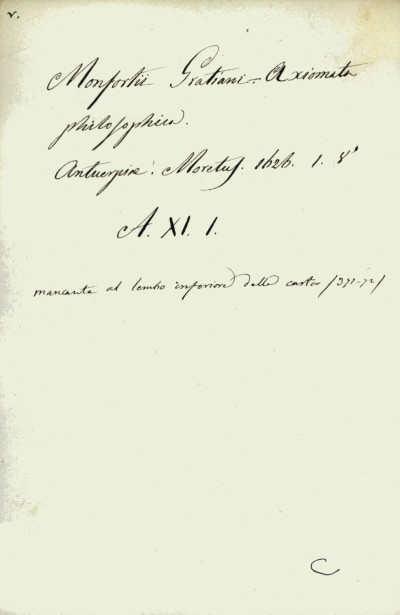 v.
Monfortii Gratiani - Axiomata
philosophica.
Antuerpiæ: Moretus. 1626. 1. 8°
A. XI. 1.
mancante al lembo inferiore della carta /371-72/
C